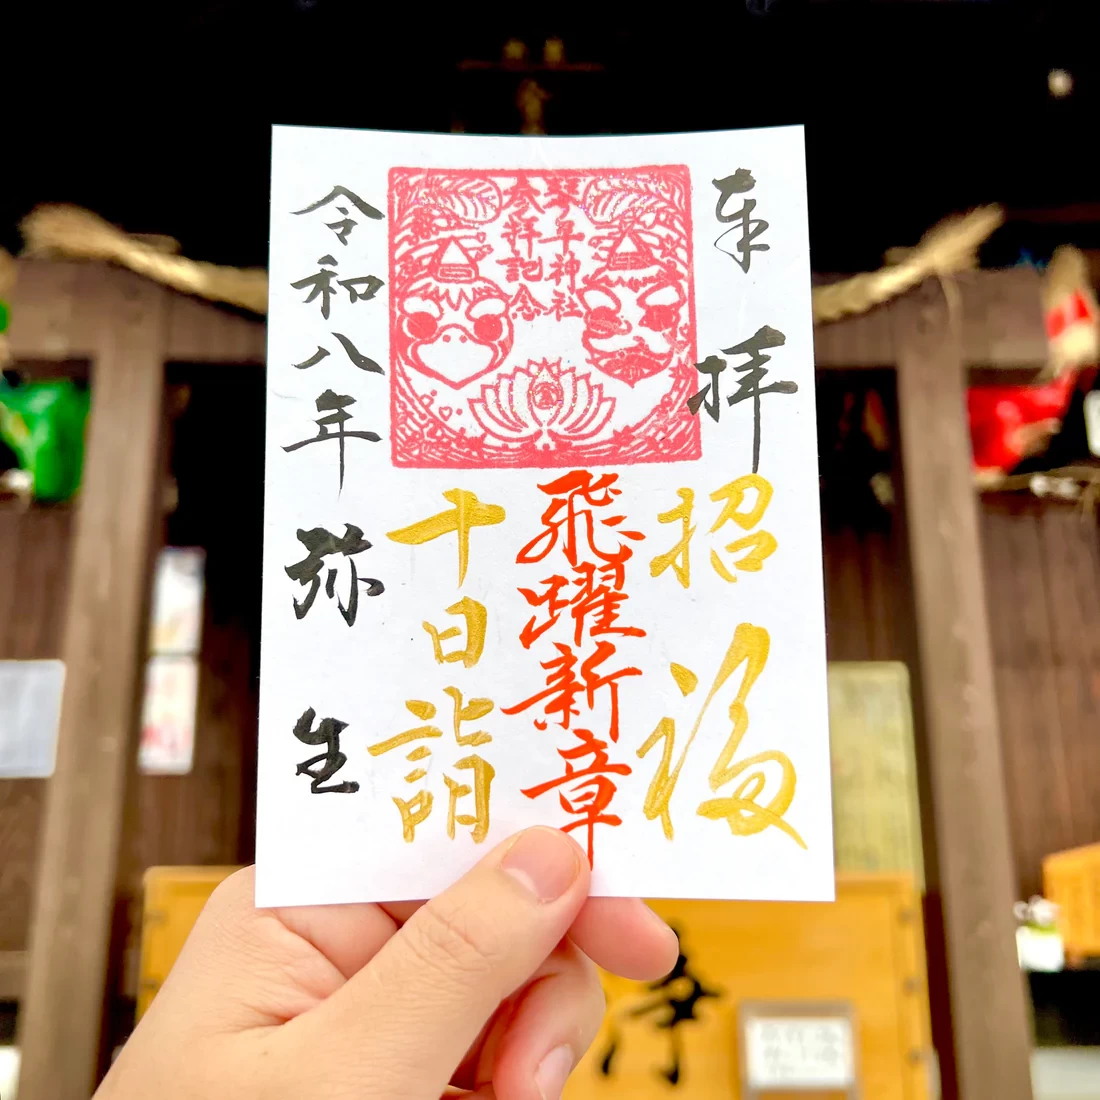 奉拝
招福
琴平神社
参拝記念
飛躍新章
十日詣
令和八年弥生
浄